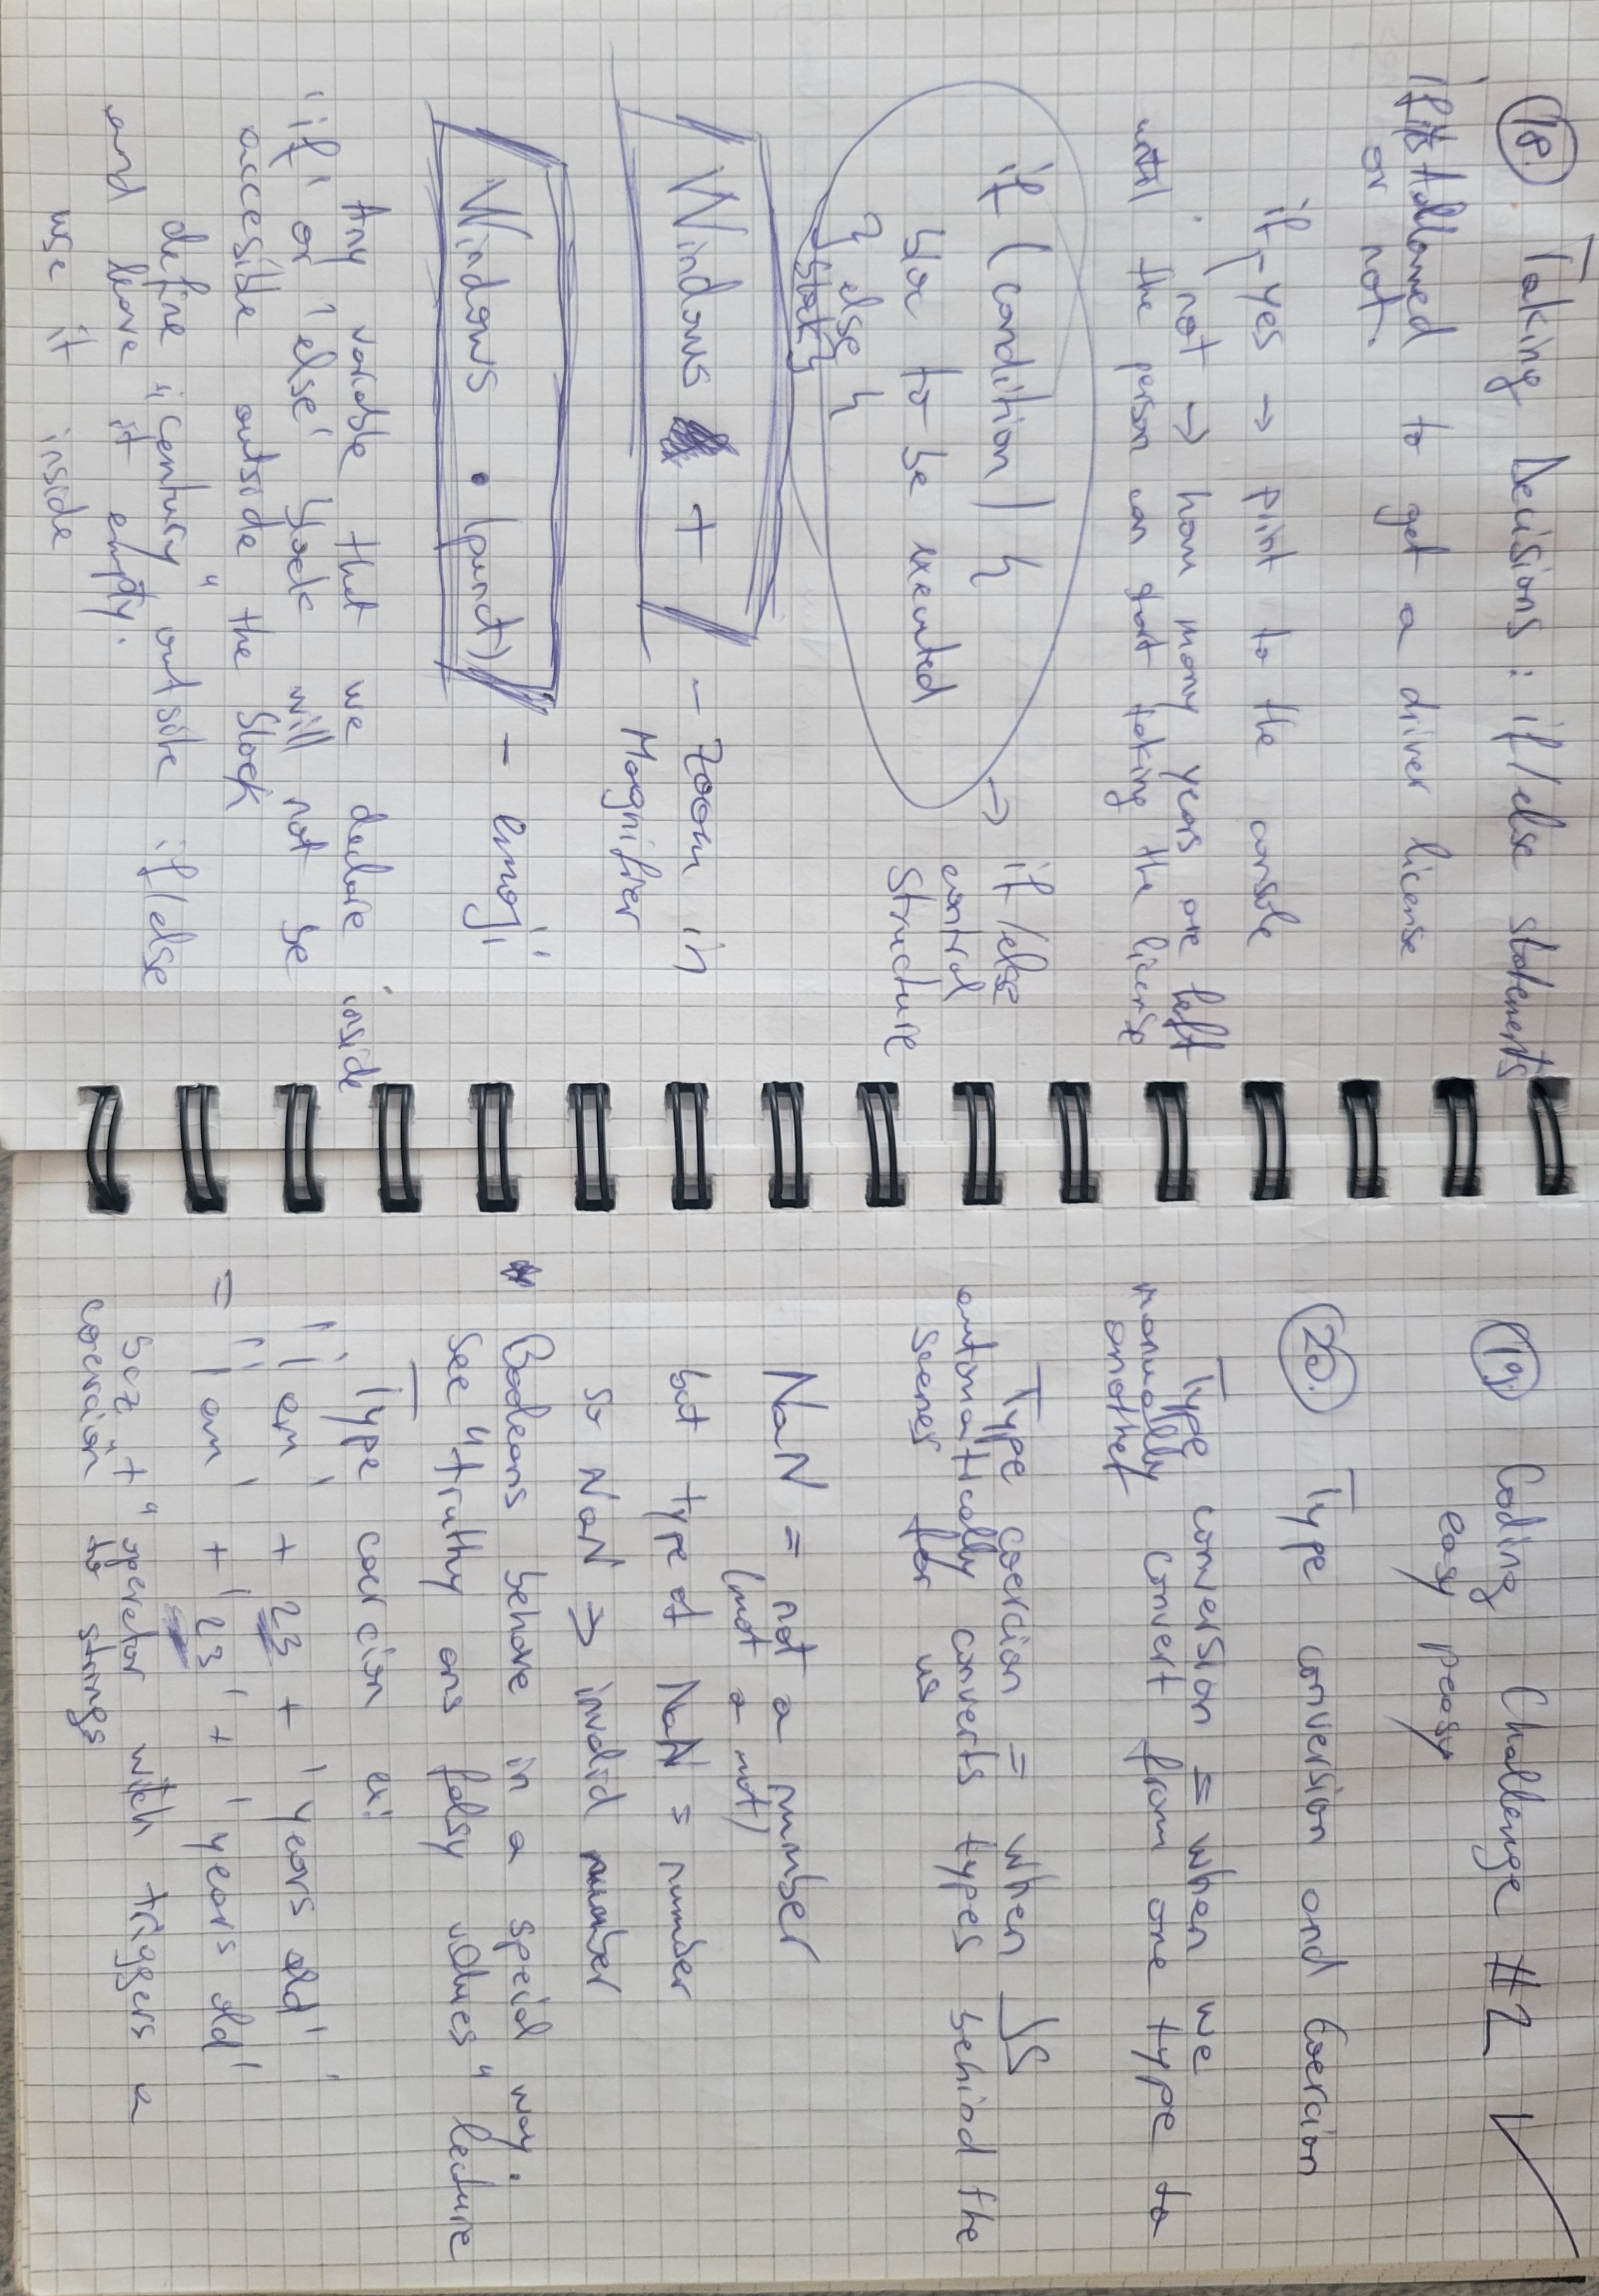 18. Taking Decisions : if/else statements
if allowed to get a driver license
or not.
if, -yes → print to the console
· not → how many years are left
until the person can start taking the license
if ( condition ) {
to be executed
} else {
}
→ if/else
control
structure
Windows + - zoom in
Magnifier
Windows . (punct) - emoji
Any variable that we declare inside
'if' or 'else' block will not be
accesible outside the block
define "century" outside if/else
and leave it empty.
use it inside
19. Coding Challenge #2 ✓
easy peasy
20. Type conversion and Coercion
Type conversion = when we
manually convert from one type to
another
Type coercion = when JS
automatically converts types behind the
scenes for us
NaN = not a number
(not a not)
but type of NaN = number
so NaN → invalid number
* Booleans behave in a special way.
See "truthy ans falsy values" lecture
Type coercion ex:
'I am' + 23 + 'years old'
= 'I am' + '23' + 'years old'
bcz "+" operator witch triggers a
coercion to strings